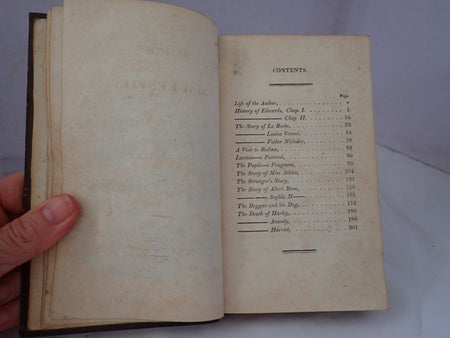 CONTENTS.
Page
Life of the Author, v
History of Edwards, Chap. I. 1
Chap. II 16
The Story of La Roche, 22
Louisa Venoni, 42
Father Nicholas, 58
A Visit to Bedlam, 82
Lavinia—a Pastoral, 90
The Pupil—a Fragment, 95
The Story of Miss Atkins, 104
The Stranger's Story, 130
The Story of Albert Bane, 155
Sophia M—— 165
The Beggar and his Dog, 175
The Death of Harley, 180
Annesly, 188
Harriet, 201